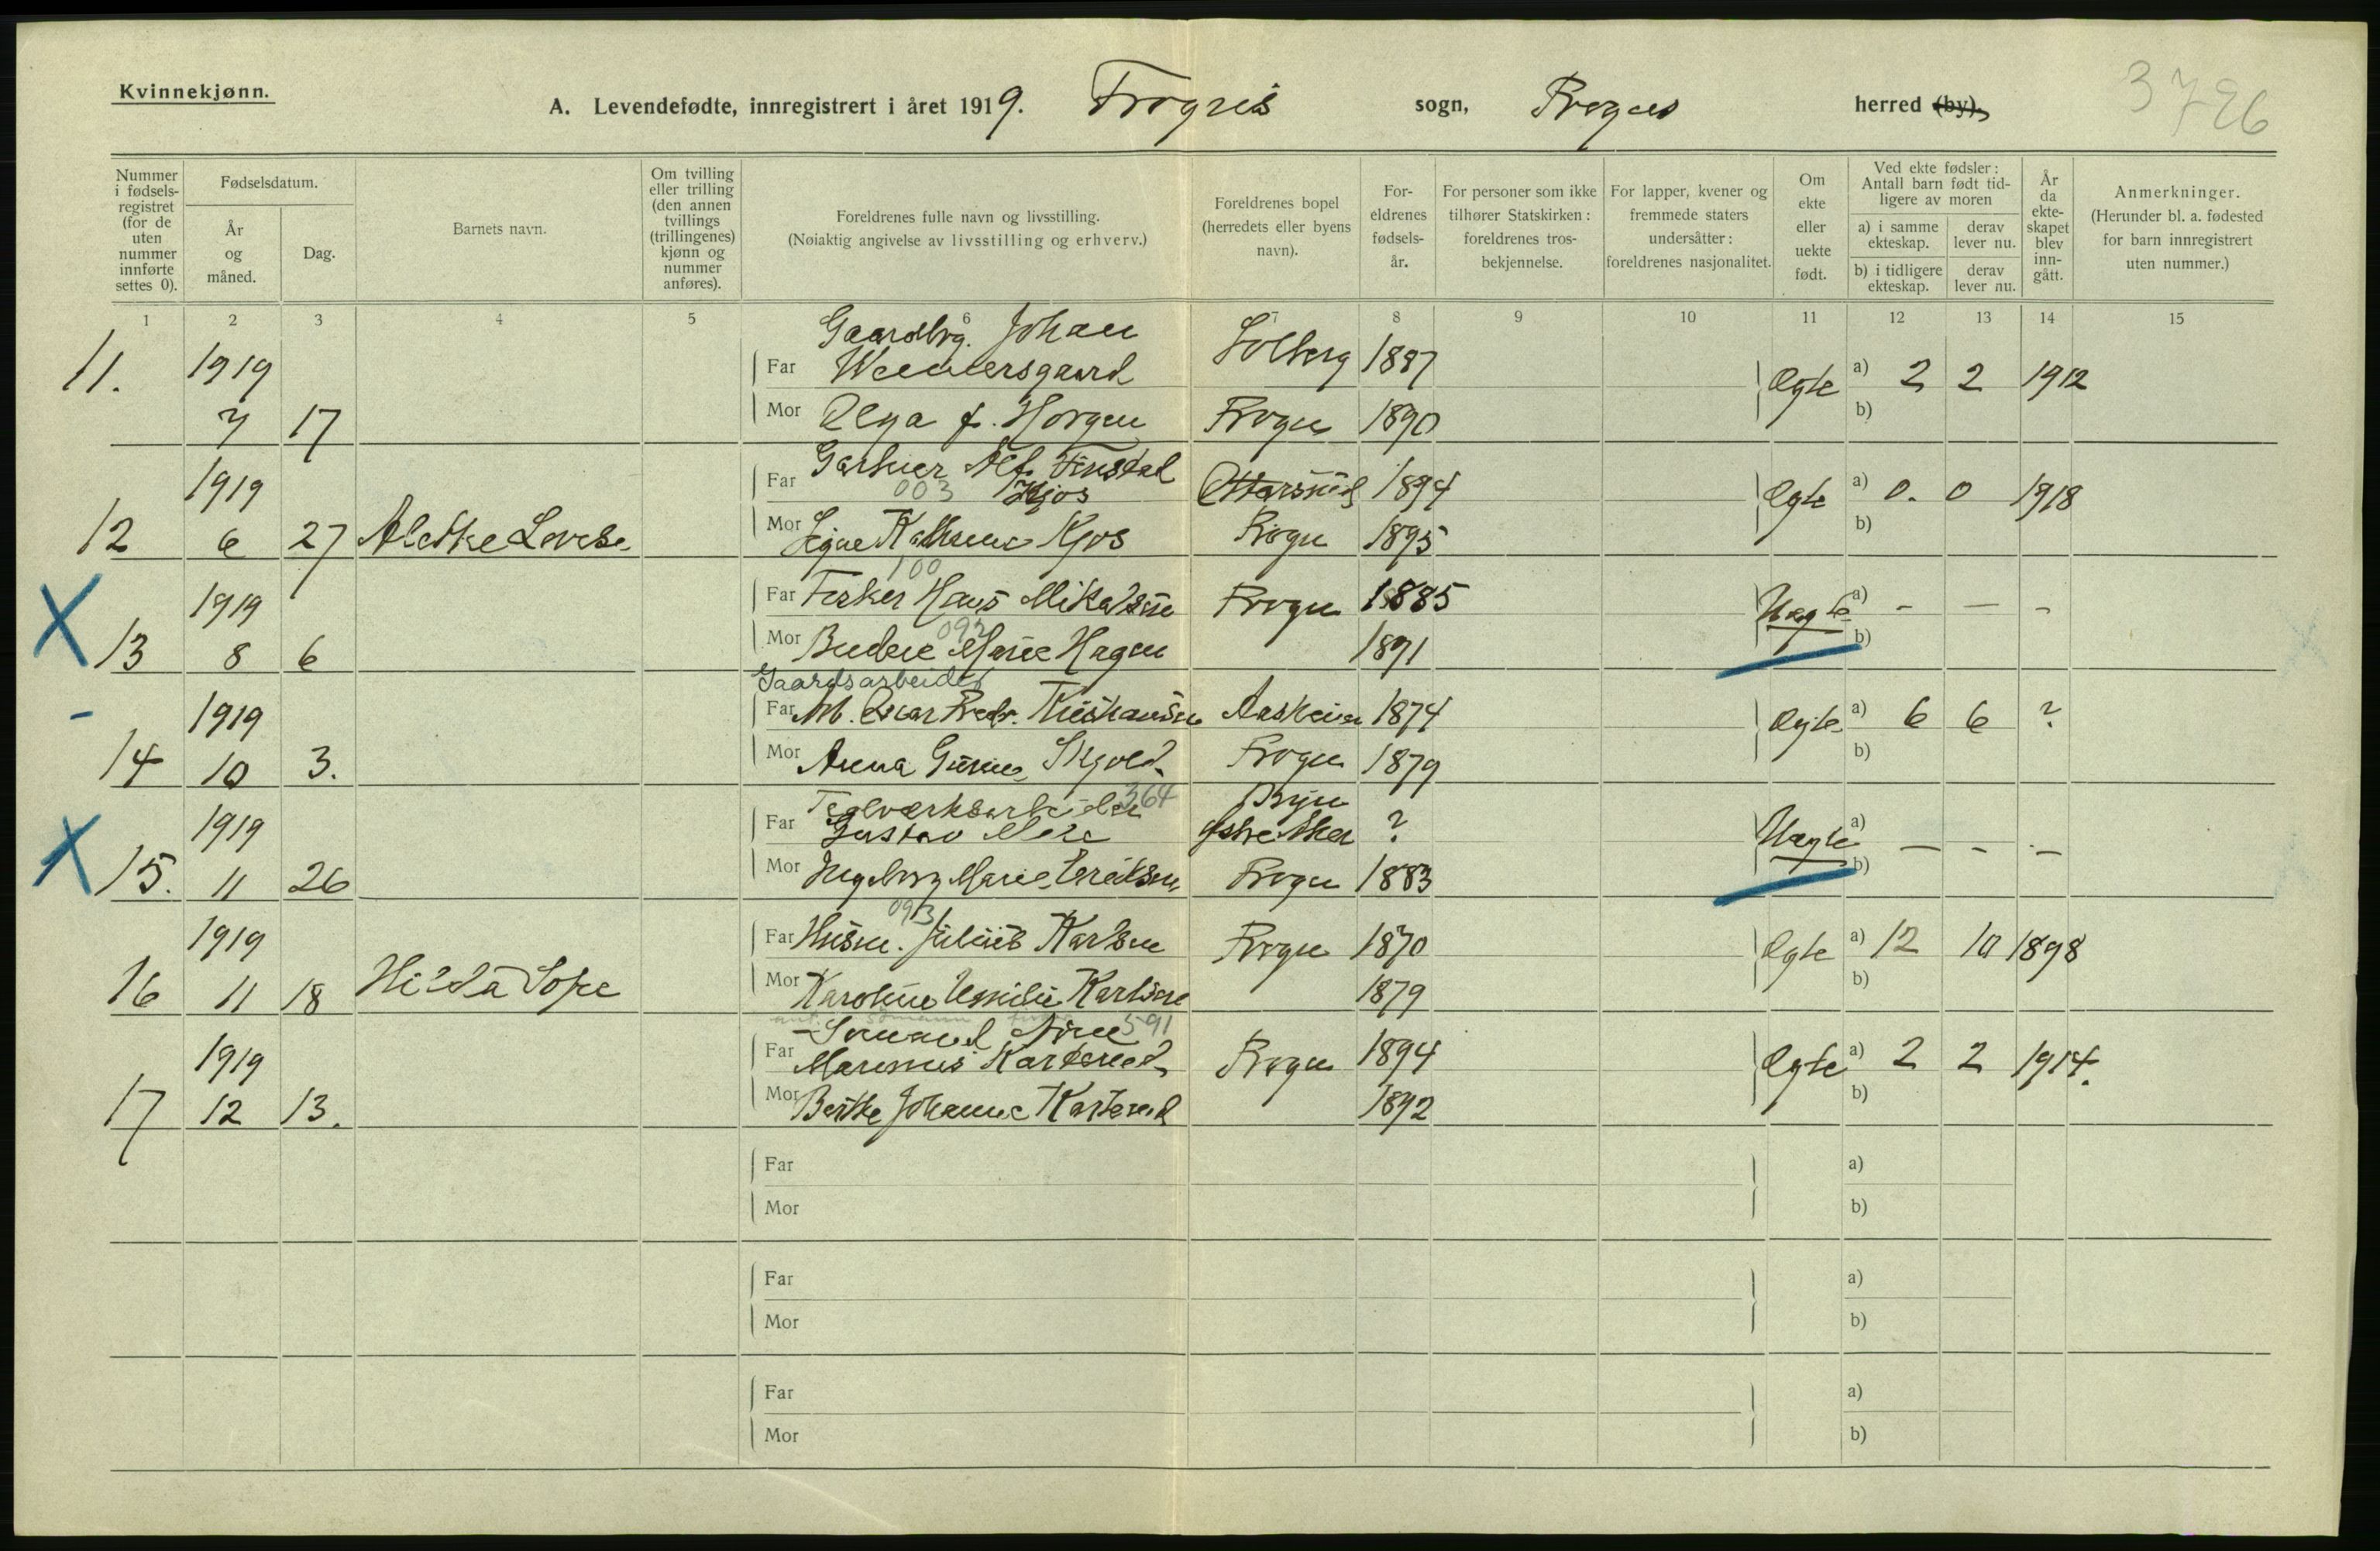 Kvinnekjønn.
A. Levendefødte, innregistrert i året 1919. Frogns sogn, Frogns herred (by).
3726
Nummer i fødselsregistret (for de uten nummer innførte settes 0).
Fødselsdatum.
År og måned.
Dag.
Barnets navn.
Om tvilling eller trilling (den annen tvillings (trillingenes) kjønn og nummer anføres).
Foreldrenes fulle navn og livsstilling.
(Nøiaktig angivelse av livsstilling og erhverv.)
Foreldrenes bopel (herredets eller byens navn).
Foreldrenes fødselsår.
For personer som ikke tilhører Statskirken: foreldrenes trosbekjennelse.
For lapper, kvener og fremmede staters undersåtter: foreldrenes nasjonalitet.
Om ekte eller uekte født.
Ved ekte fødsler: Antall barn født tidligere av moren
a) i samme ekteskap.
derav lever nu.
b) i tidligere ekteskap.
derav lever nu.
År da ekteskapet blev inngått.
Anmerkninger.
(Herunder bl. a. fødested for barn innregistrert uten nummer.)
1 2 3 4 5 6 7 8 9 10 11 12 13 14 15
Gaardbrg. Johan
11. 1919 Far Solberg 1887 Ægte a) 2 2 1912
7 17 Mor Olga f. Horgen Frogn 1890 b)
Gartner Alf Finstad
1919 Far 003 Kjos 1894 Ægte a) 0. 0 1918
12 6 27 Mor Signe Kjos Frogn 1895 b)
100
X 1919 Far Fisker Hans Mikalsen Frogn 1885 Uægte a) - — -
092
13 8 6 Mor Budeie Marie Hagen 1891 b)
Gaardsarbeider
- 1919 Far M. Oscar Fredr. Kristiansen Aasheim 1874 Ægte a) 6 6 ?
14 10 3. Mor Anna Skjold Frogn 1879 b)
Teglværksarbeider 364 Bryn
X 1919 Far Gustav Østre Aker ? Uægte a) — - —
15. 11 26 Mor Ingeborg Marie Eriksen Frogn 1883 b)
093
1919 Far Husm. Julius Karlsen Frogn 1870 Ægte a) 12 10 1898
16 11 18 Hilda Sofie Mor Karoline Emilie Karlsen 1879 b)
Sømand 591
1919 Far Marenius Frogn 1894 Ægte a) 2 2 1914.
17 12 13. Mor Berthe Johanne 1892 b)
Far a)
Mor b)
Far a)
Mor b)
Far a)
Mor b)